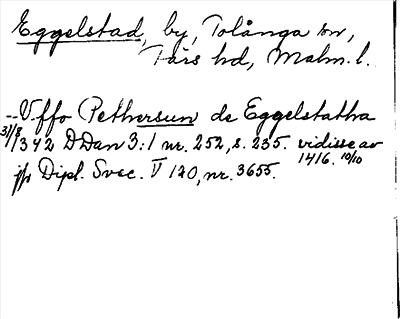 Eggelstad, by, Tolånga sn,
Färs hd, Malm. l.
-- Uffo Pethersun de Eggelstatha
31/8 1342 DDan 3:1 nr. 252, s. 235. vidisse av
1416. 10/10
jfr Dipl. Svec. V 120, nr. 3655.